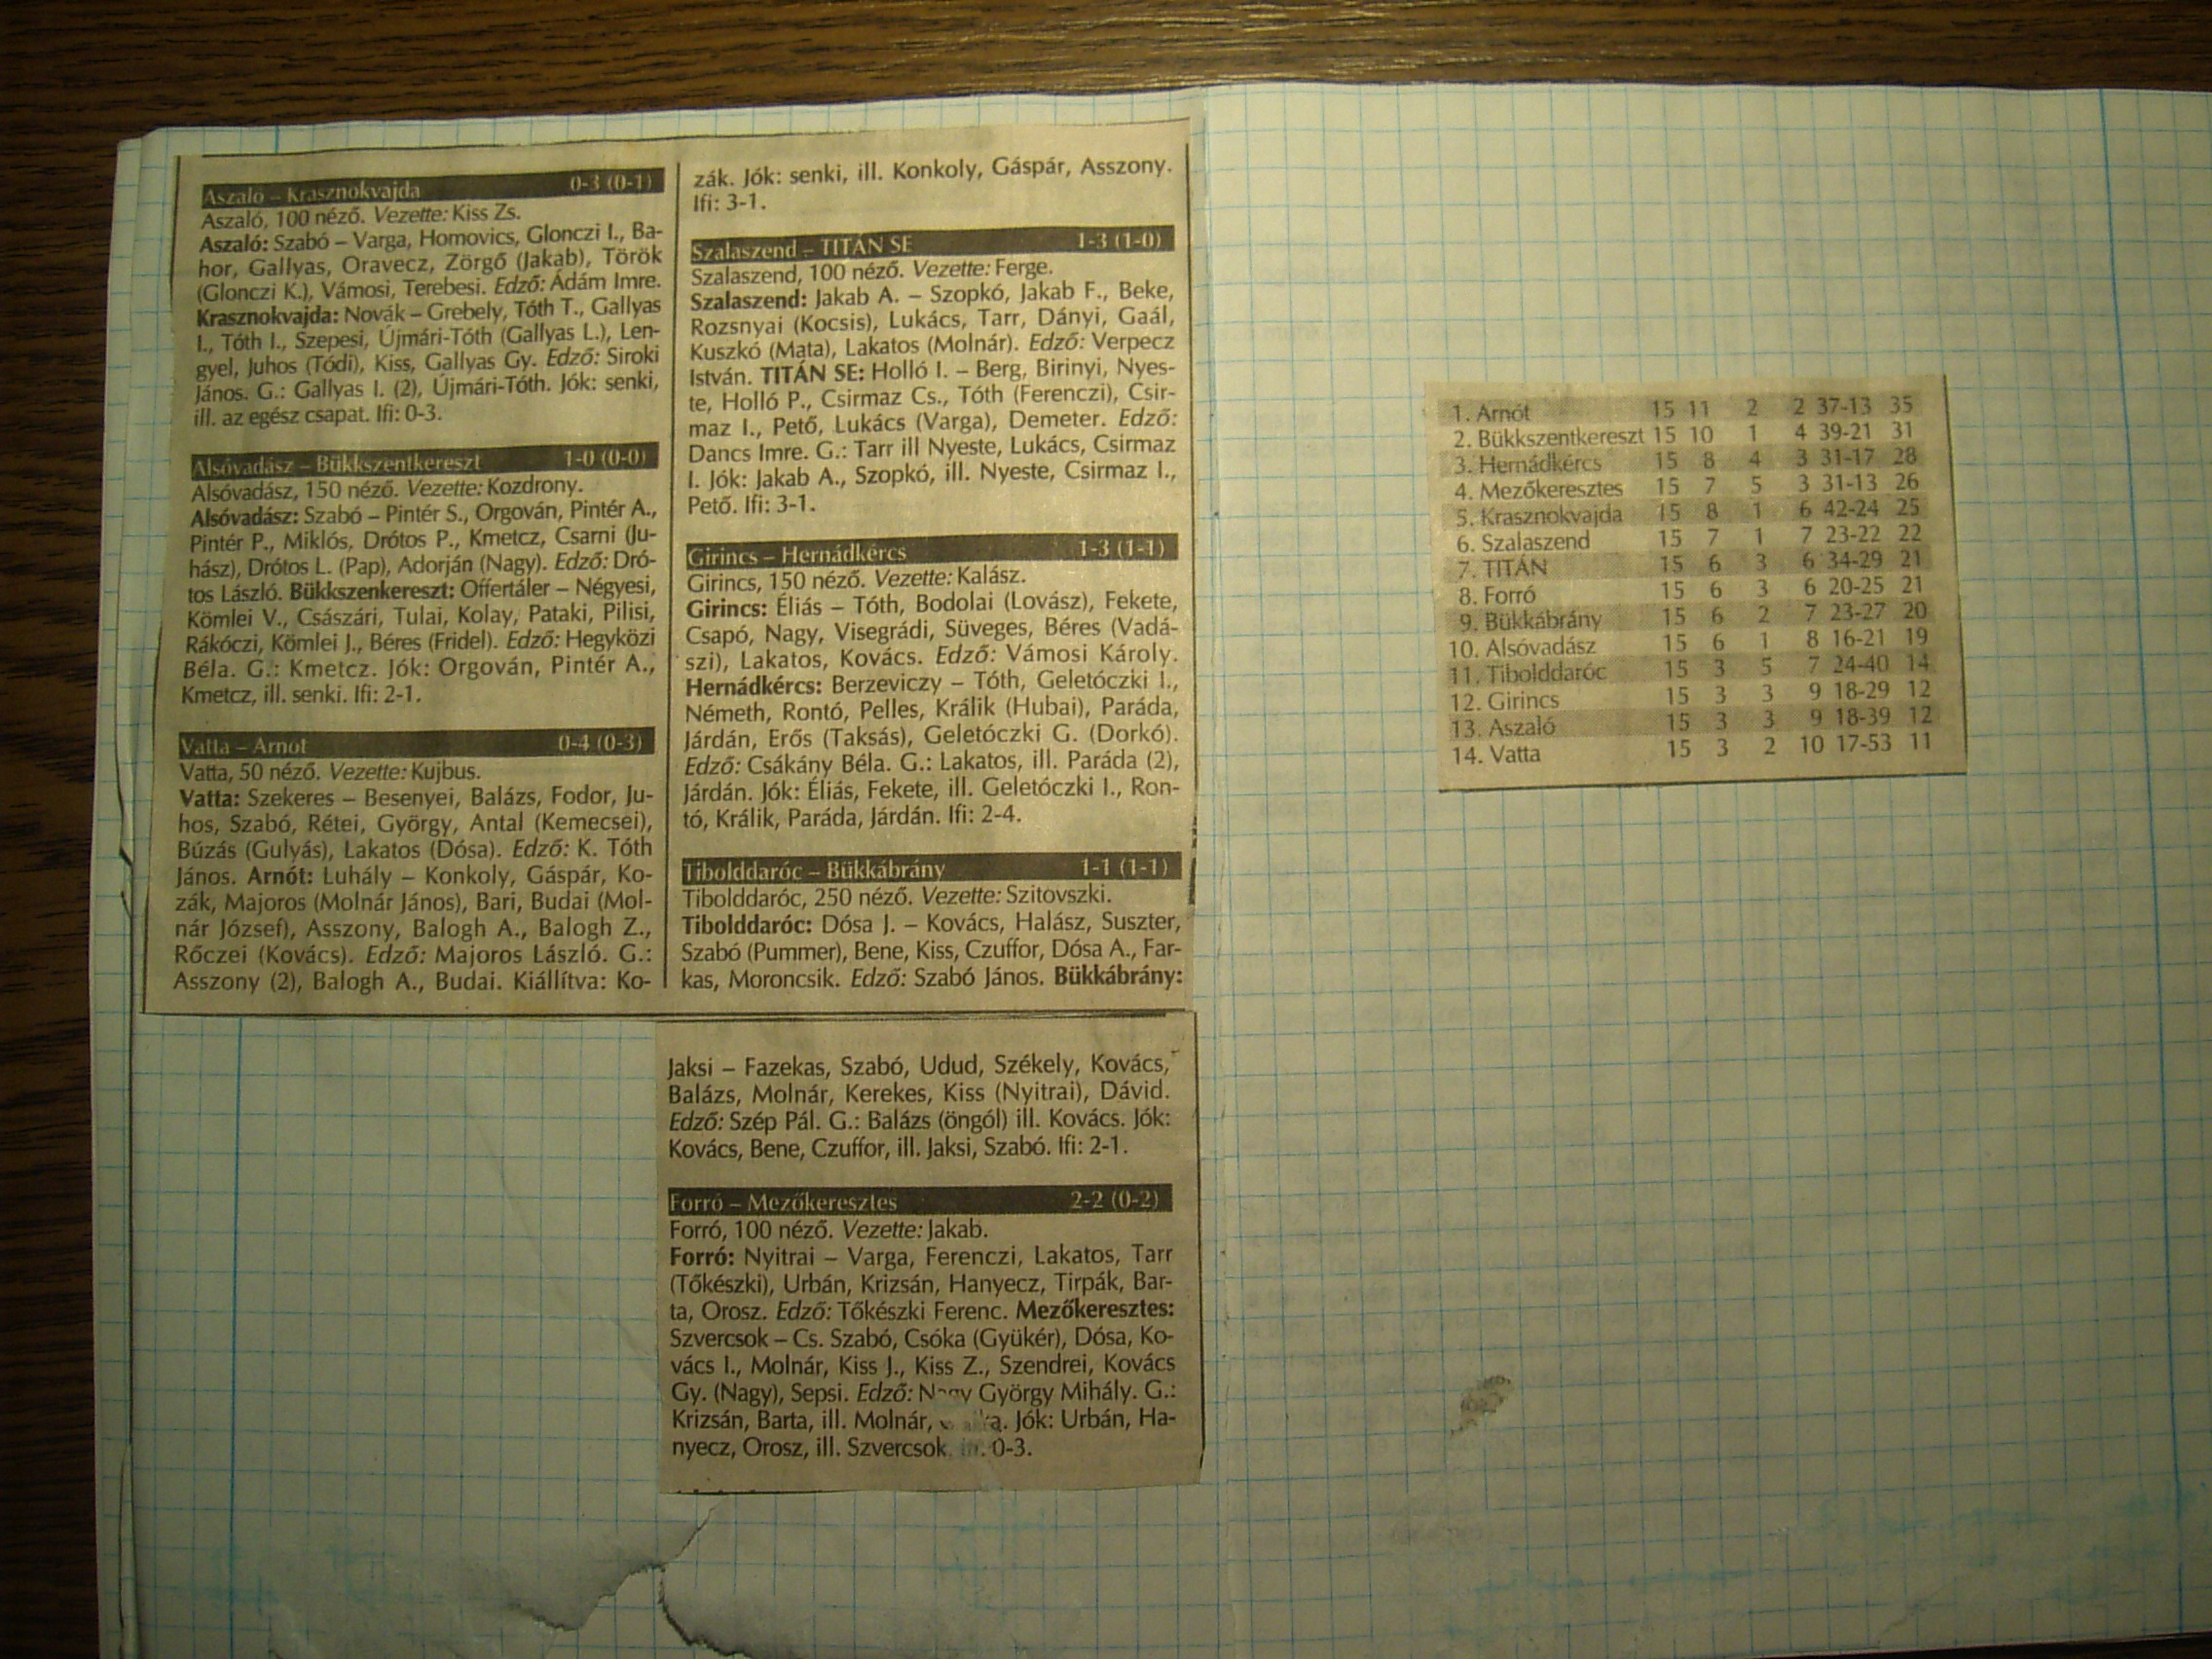 Aszaló – Krasznokvajda 0-3 (0-1)
Aszaló, 100 néző. Vezette: Kiss Zs.
Aszaló: Szabó – Varga, Homovics, Glonczi I., Ba-
hor, Gallyas, Oravecz, Zörgő (Jakab), Török
(Glonczi K.), Vámosi, Terebesi. Edző: Ádám Imre.
Krasznokvajda: Novák – Grebely, Tóth T., Gallyas
I., Tóth I., Szepesi, Újmári-Tóth (Gallyas L.), Len-
gyel, Juhos (Tódi), Kiss, Gallyas Gy. Edző: Siroki
János. G.: Gallyas I. (2), Újmári-Tóth. Jók: senki,
ill. az egész csapat. Ifi: 0-3.
Alsóvadász – Bükkszentkereszt 1-0 (0-0)
Alsóvadász, 150 néző. Vezette: Kozdrony.
Alsóvadász: Szabó – Pintér S., Orgován, Pintér A.,
Pintér P., Miklós, Drótos P., Kmetcz, Csarni (Ju-
hász), Drótos L. (Pap), Adorján (Nagy). Edző: Dró-
tos László. Bükkszenkereszt: Offertáler – Négyesi,
Kömlei V., Császári, Tulai, Kolay, Pataki, Pilisi,
Rákóczi, Kömlei J., Béres (Fridel). Edző: Hegyközi
Béla. G.: Kmetcz. Jók: Orgován, Pintér A.,
Kmetcz, ill. senki. Ifi: 2-1.
Vatta – Arnót 0-4 (0-3)
Vatta, 50 néző. Vezette: Kujbus.
Vatta: Szekeres – Besenyei, Balázs, Fodor, Ju-
hos, Szabó, Rétei, György, Antal (Kemecsei),
Búzás (Gulyás), Lakatos (Dósa). Edző: K. Tóth
János. Arnót: Luhály – Konkoly, Gáspár, Ko-
zák, Majoros (Molnár János), Bari, Budai (Mol-
nár József), Asszony, Balogh A., Balogh Z.,
Rőczei (Kovács). Edző: Majoros László. G.:
Asszony (2), Balogh A., Budai. Kiállítva: Ko-
zák. Jók: senki, ill. Konkoly, Gáspár, Asszony.
Ifi: 3-1.
Szalaszend – TITÁN SE 1-3 (1-0)
Szalaszend, 100 néző. Vezette: Ferge.
Szalaszend: Jakab A. – Szopkó, Jakab F., Beke,
Rozsnyai (Kocsis), Lukács, Tarr, Dányi, Gaál,
Kuszkó (Mata), Lakatos (Molnár). Edző: Verpecz
István. TITÁN SE: Holló I. – Berg, Birinyi, Nyes-
te, Holló P., Csirmaz Cs., Tóth (Ferenczi), Csir-
maz I., Pető, Lukács (Varga), Demeter. Edző:
Dancs Imre. G.: Tarr ill Nyeste, Lukács, Csirmaz
I. Jók: Jakab A., Szopkó, ill. Nyeste, Csirmaz I.,
Pető. Ifi: 3-1.
Girincs – Hernádkércs 1-3 (1-1)
Girincs, 150 néző. Vezette: Kalász.
Girincs: Éliás – Tóth, Bodolai (Lovász), Fekete,
Csapó, Nagy, Visegrádi, Süveges, Béres (Vadá-
szi), Lakatos, Kovács. Edző: Vámosi Károly.
Hernádkércs: Berzeviczy – Tóth, Geletóczki I.,
Németh, Rontó, Pelles, Králik (Hubai), Paráda,
Járdán, Erős (Taksás), Geletóczki G. (Dorkó).
Edző: Csákány Béla. G.: Lakatos, ill. Paráda (2),
Járdán. Jók: Éliás, Fekete, ill. Geletóczki I., Ron-
tó, Králik, Paráda, Járdán. Ifi: 2-4.
Tibolddaróc – Bükkábrány 1-1 (1-1)
Tibolddaróc, 250 néző. Vezette: Szitovszki.
Tibolddaróc: Dósa J. – Kovács, Halász, Suszter,
Szabó (Pummer), Bene, Kiss, Czuffor, Dósa A., Far-
kas, Moroncsik. Edző: Szabó János. Bükkábrány:
Jaksi – Fazekas, Szabó, Udud, Székely, Kovács,
Balázs, Molnár, Kerekes, Kiss (Nyitrai), Dávid.
Edző: Szép Pál. G.: Balázs (öngól) ill. Kovács. Jók:
Kovács, Bene, Czuffor, ill. Jaksi, Szabó. Ifi: 2-1.
Forró – Mezőkeresztes 2-2 (0-2)
Forró, 100 néző. Vezette: Jakab.
Forró: Nyitrai – Varga, Ferenczi, Lakatos, Tarr
(Tőkészki), Urbán, Krizsán, Hanyecz, Tirpák, Bar-
ta, Orosz. Edző: Tőkészki Ferenc. Mezőkeresztes:
Szvercsok – Cs. Szabó, Csóka (Gyükér), Dósa, Ko-
vács I., Molnár, Kiss J., Kiss Z., Szendrei, Kovács
Gy. (Nagy), Sepsi. Edző: Nagy György Mihály. G.:
Krizsán, Barta, ill. Molnár, Jók: Urbán, Ha-
nyecz, Orosz, ill. Szvercsok. 0-3.
1. Arnót 15 11 2 2 37-13 35
2. Bükkszentkereszt 15 10 1 4 39-21 31
3. Hernádkércs 15 8 4 3 31-17 28
4. Mezőkeresztes 15 7 5 3 31-13 26
5. Krasznokvajda 15 8 1 6 42-24 25
6. Szalaszend 15 7 1 7 23-22 22
7. TITÁN 15 6 3 6 34-29 21
8. Forró 15 6 3 6 20-25 21
9. Bükkábrány 15 6 2 7 23-27 20
10. Alsóvadász 15 6 1 8 16-21 19
11. Tibolddaróc 15 3 5 7 24-40 14
12. Girincs 15 3 3 9 18-29 12
13. Aszaló 15 3 3 9 18-39 12
14. Vatta 15 3 2 10 17-53 11